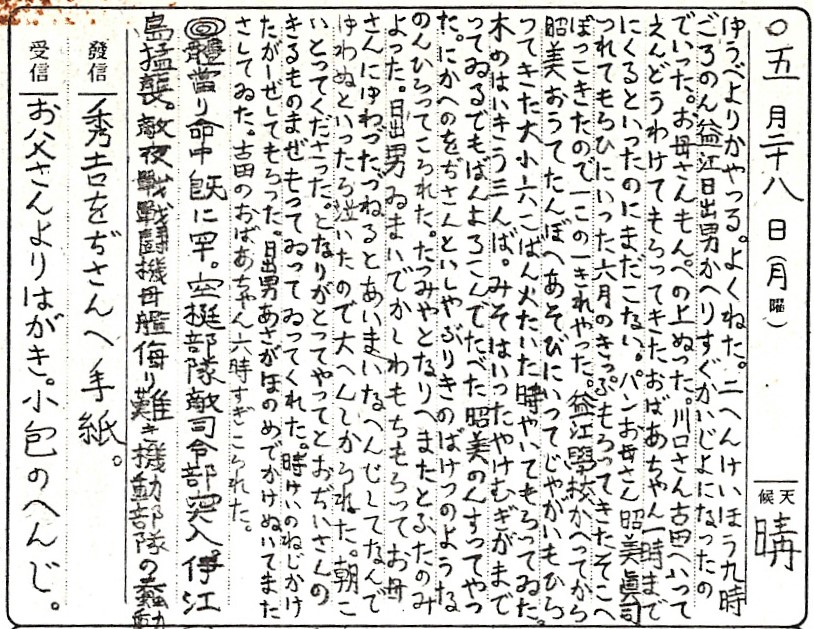 〇五月二十八日(月曜)
天候 晴
ゆうべよりかやつる。よくねた。二へんけいほう九時
ごろのん益江日出男かへりすぐかいじよになつたの
でいつた。お母さんもんぺの上ぬつた。川口さん古田へいつて
えんどうわけてもらつてきたおばあちやん一時まで
にくるといつたのにまだこない。パンお母さん昭美眞司
つれてもらひにいつた六月のきつぷもらつてきたそこへ
ぼつこきたので一この一きれやつた。益江學校かへつてから
昭美おうてたんぼへあそびにいつてじやがいもひろ
つてきた大小六こばん火たいた時やいてもらつてゐた。
木めはいきう三んば。みそはいつたやけむぎがまで
つてゐるでもばんよろこんでたべた昭美のんすつてやつ
た。にかへのをぢさんといしやぶりきのばけつのような
のんひろつてこられた。たつみやとなりへまたとふたのみ
よつた。日出男ゐまいでかしわもちもらつてお母
さんにゆわつたつねるとあいまいなへんじしてなんで
ゆわぬといつたら泣いたので大へんしかられた。朝こ
いとつてくださつた。となりがとつてやつてとおぢいさんの
きるものまぜもつてゐつてゐつてくれた。時けいのねじかけ
たがーぜしてもらつた。日出男あさがほのめでかけぬいてまた
さしてゐた。古田のおばあちやん六時すぎこられた。
◎體當り命中既に四。空挺部隊敵司令部突入。伊江
島猛襲。敵夜戰戰鬪機母艦侮り難き機動部隊の蠢動
發信 秀吉をぢさんへ手紙。
受信 お父さんよりはがき。小包のへんじ。